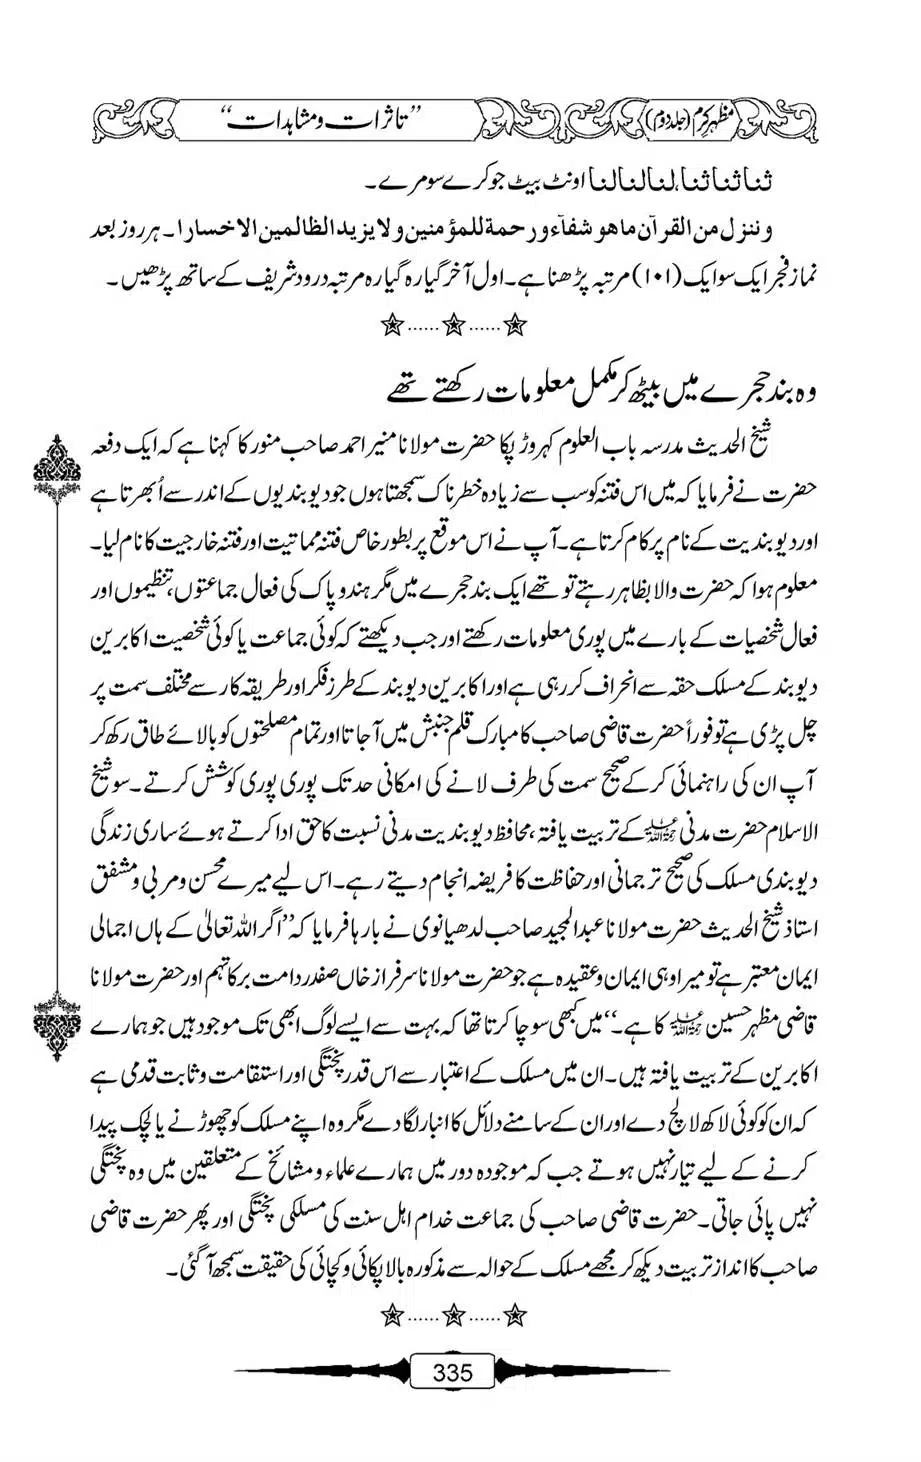 مظہر کرم (جلد دوم)
”تاثرات و مشاہدات“
ثنا ثنا ثنا، لنا لنا لنا اونٹ بیٹ جو کرے سو مرے۔
وننزل من القرآن ماھو شفآء ورحمة للمؤمنین ولا یزید الظالمین الا خسارا۔ ہر روز بعد
نماز فجر ایک سو ایک (۱۰۱) مرتبہ پڑھنا ہے۔ اول آخر گیارہ گیارہ مرتبہ درود شریف کے ساتھ پڑھیں۔
☆......☆......☆
وہ بند حجرے میں بیٹھ کر مکمل معلومات رکھتے تھے
شیخ الحدیث مدرسہ باب العلوم کہروڑپکا حضرت مولانا منیر احمد صاحب منور کا کہنا ہے کہ ایک دفعہ
حضرت نے فرمایا کہ میں اس فتنہ کو سب سے زیادہ خطرناک سمجھتا ہوں جو دیوبندیوں کے اندر سے اُبھرتا ہے
اور دیوبندیت کے نام پر کام کرتا ہے۔ آپ نے اس موقع پر بطور خاص فتنہ مماتیت اور فتنہ خارجیت کا نام لیا۔
معلوم ہوا کہ حضرت والا بظاہر رہتے تو تھے ایک بند حجرے میں مگر ہند و پاک کی فعال جماعتوں، تنظیموں اور
فعال شخصیات کے بارے میں پوری معلومات رکھتے اور جب دیکھتے کہ کوئی جماعت یا کوئی شخصیت اکابرین
دیوبند کے مسلک حقہ سے انحراف کر رہی ہے اور اکابرین دیوبند کے طرز فکر اور طریقہ کار سے مختلف سمت پر
چل پڑی ہے تو فوراً حضرت قاضی صاحب کا مبارک قلم جنبش میں آ جاتا اور تمام مصلحتوں کو بالائے طاق رکھ کر
آپ ان کی راہنمائی کر کے صحیح سمت کی طرف لانے کی امکانی حد تک پوری پوری کوشش کرتے۔ سو شیخ
الاسلام حضرت مدنی رحمۃ اللہ علیہ کے تربیت یافتہ، محافظ دیوبندیت مدنی نسبت کا حق ادا کرتے ہوئے ساری زندگی
دیوبندی مسلک کی صحیح ترجمانی اور حفاظت کا فریضہ انجام دیتے رہے۔ اس لیے میرے محسن و مربی و مشفق
استاذ شیخ الحدیث حضرت مولانا عبدالمجید صاحب لدھیانوی نے بارہا فرمایا کہ ”اگر اللہ تعالیٰ کے ہاں اجمالی
ایمان معتبر ہے تو میرا وہی ایمان و عقیدہ ہے جو حضرت مولانا سرفراز خاں صفدر دامت برکاتہم اور حضرت مولانا
قاضی مظہر حسین رحمۃ اللہ علیہ کا ہے۔“ میں کبھی سوچا کرتا تھا کہ بہت سے ایسے لوگ ابھی تک موجود ہیں جو ہمارے
اکابرین کے تربیت یافتہ ہیں۔ ان میں مسلک کے اعتبار سے اس قدر پختگی اور استقامت و ثابت قدمی ہے
کہ ان کو کوئی لاکھ لالچ دے اور ان کے سامنے دلائل کا انبار لگا دے مگر وہ اپنے مسلک کو چھوڑنے یا لچک پیدا
کرنے کے لیے تیار نہیں ہوتے جب کہ موجودہ دور میں ہمارے علماء و مشائخ کے متعلقین میں وہ پختگی
نہیں پائی جاتی۔ حضرت قاضی صاحب کی جماعت خدام اہل سنت کی مسلکی پختگی اور پھر حضرت قاضی
صاحب کا انداز تربیت دیکھ کر مجھے مسلک کے حوالہ سے مذکورہ بالا پکائی و کچائی کی حقیقت سمجھ آ گئی۔
☆......☆......☆
335